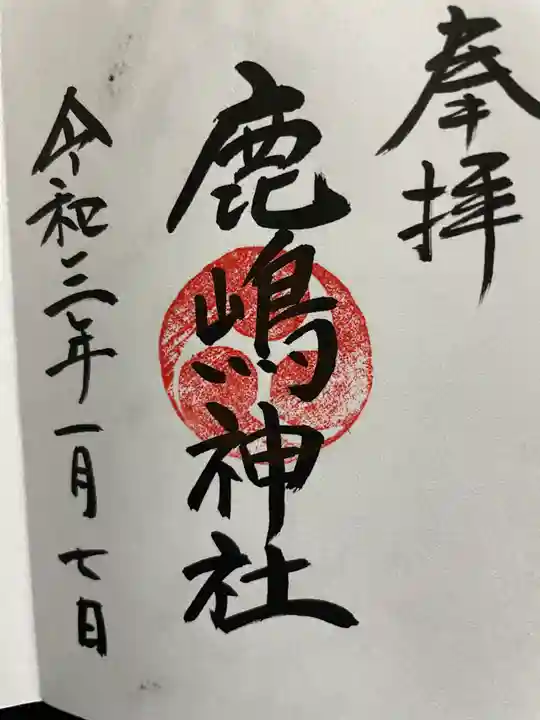 奉拝
鹿嶋神社
令和三年一月七日